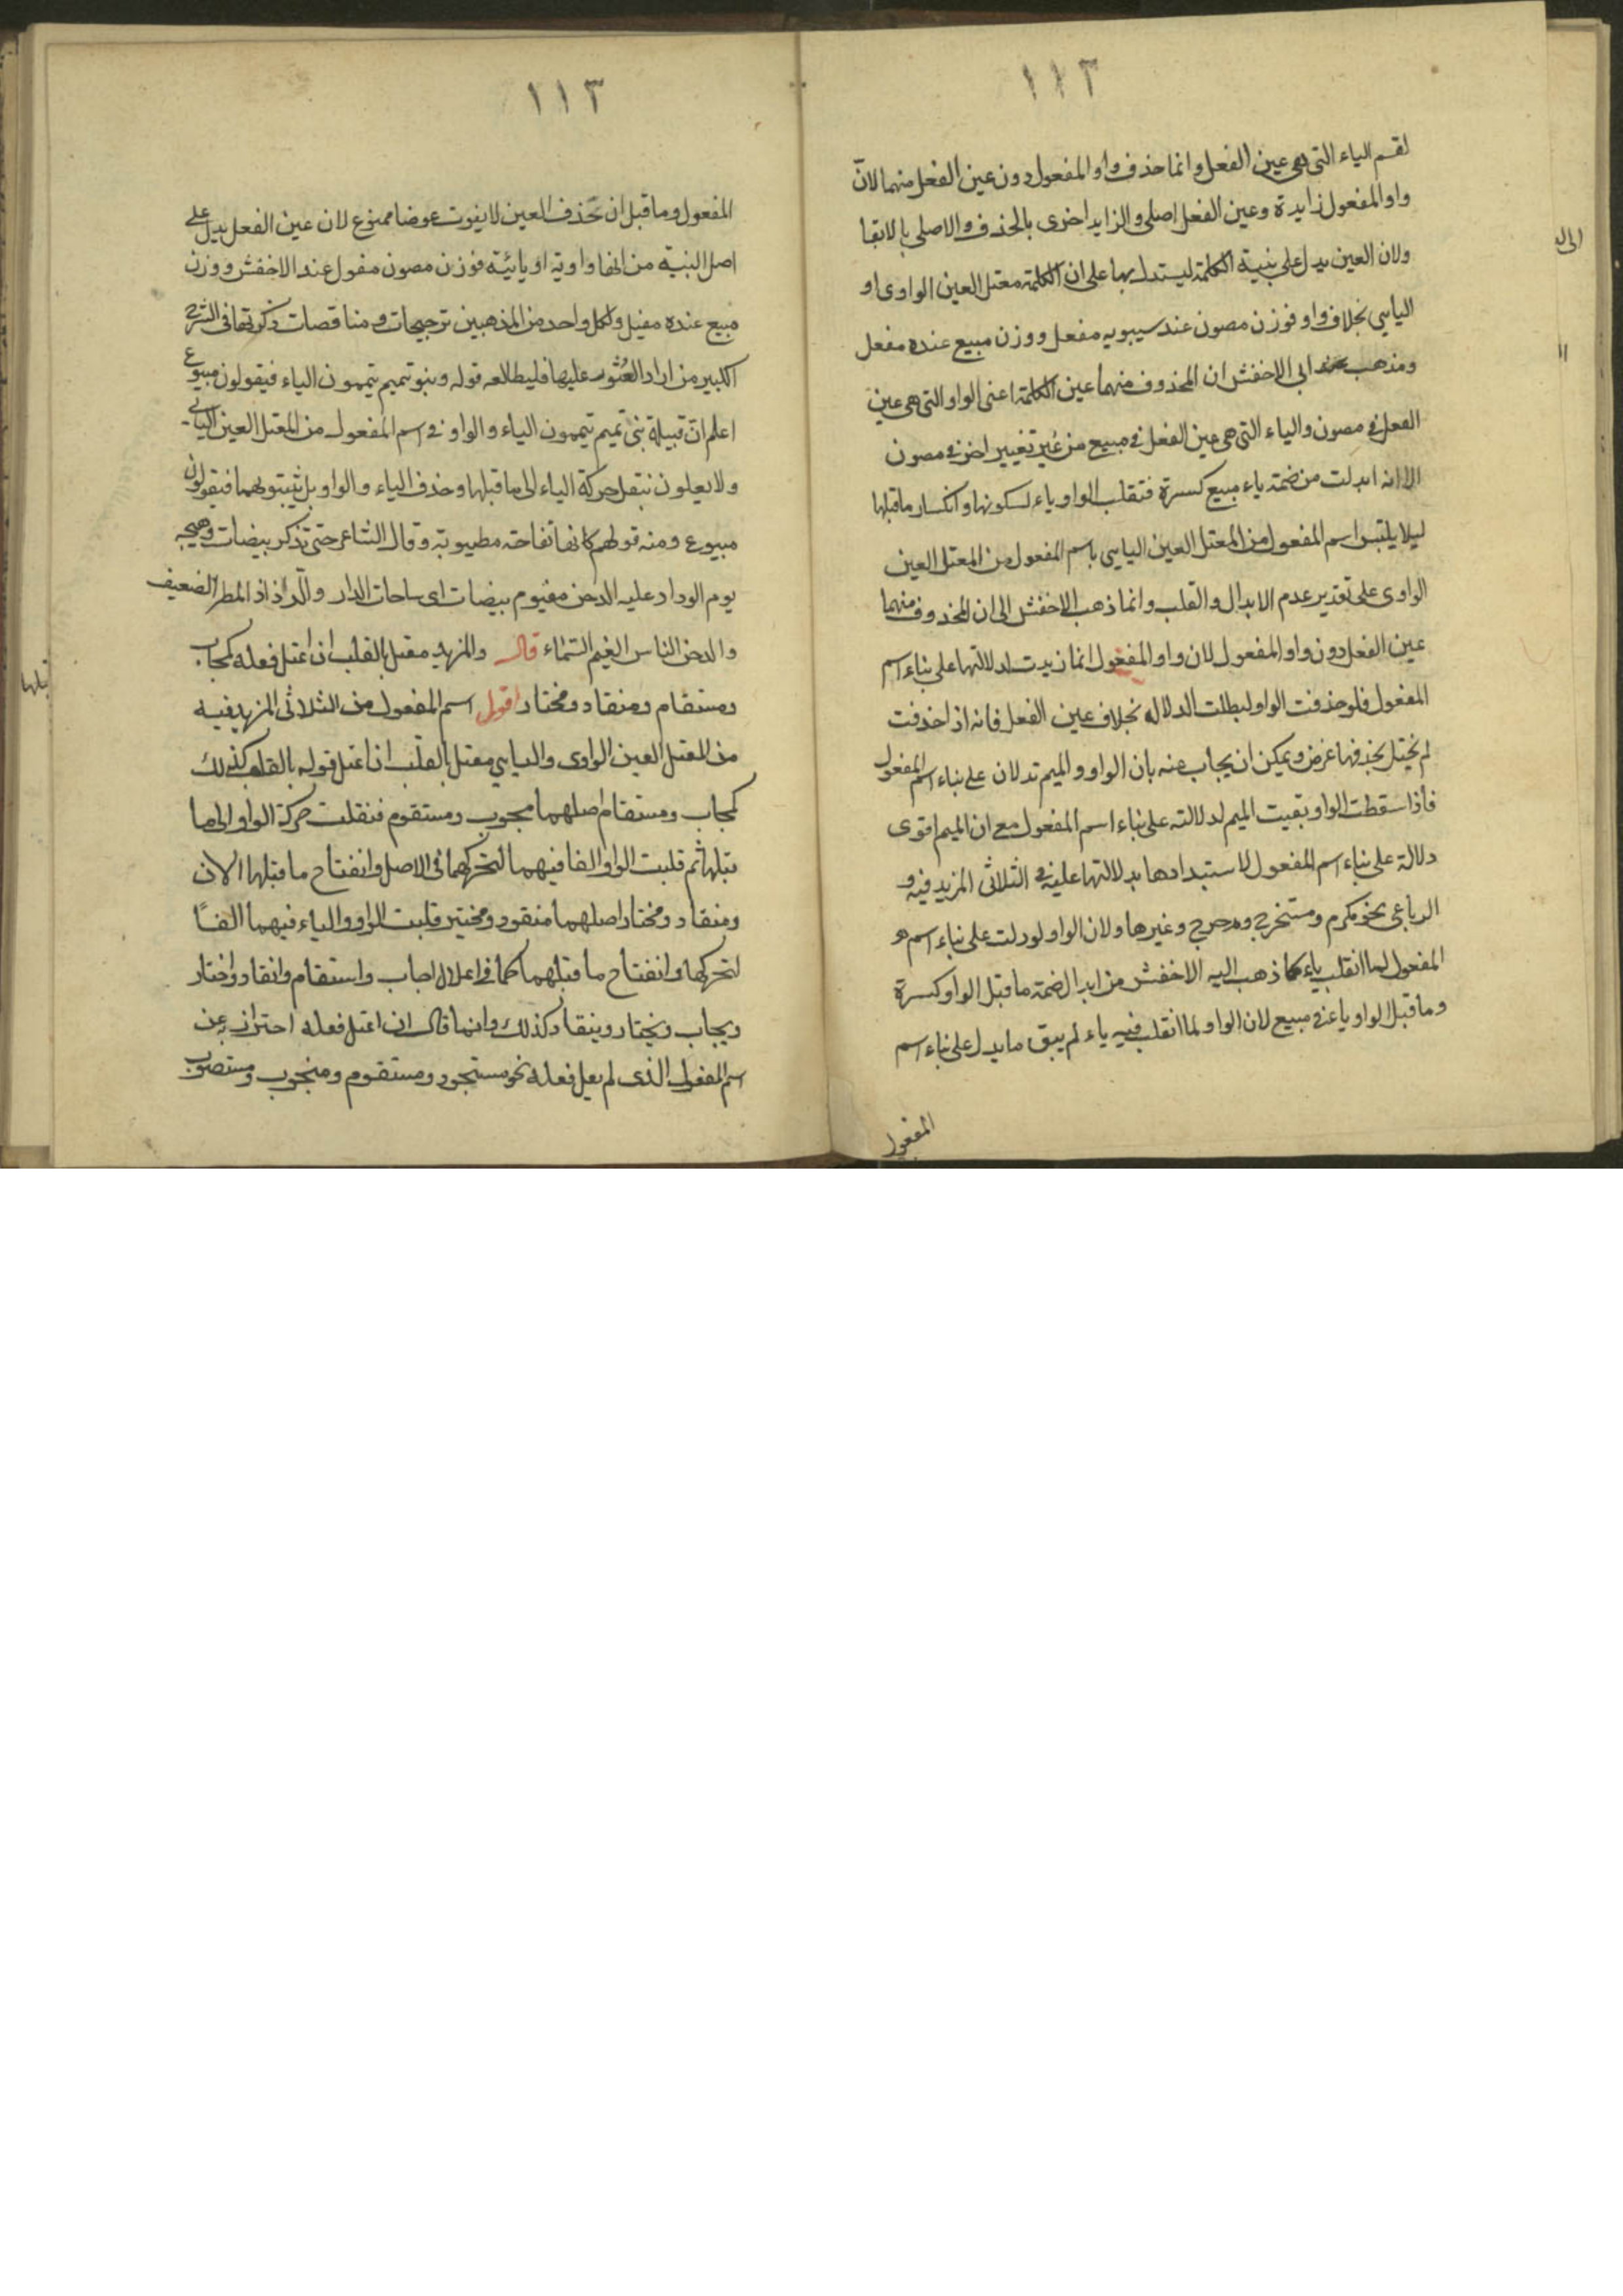 ١١٣
لقسم الياء التى هى عين الفعل وانما حذف واو المفعول دون عين الفعل منهما لانّ
واو المفعول زايدة وعين الفعل اصلى والزايد احرى بالحذف والاصلى بالابقا
ولان العين يدل على بنية الكلمة ليستدل بها على ان الكلمة معتل العين الواوى او
اليايى بخلاف واو فوزن مصون عند سيبويه مفعل ووزن مبيع عنده مفعل
ومذهب ابى الاخفش ان المحذوف منهما عين الكلمة اعنى الواو التى هى عين
الفعل فى مصون والياء التى هى عين الفعل فى مبيع من غير تغيير اخر فى مصون
الا انه ابدلت من ضمة ياء مبيع كسرة فتقلب الواو ياء لسكونها وانكسار ما قبلها
ليلا يلتبس اسم المفعول من المعتل العين اليايى باسم المفعول من المعتل العين
الواوى على تقدير عدم الابدال والقلب وانما ذهب الاخفش الى ان المحذوف منهما
عين الفعل دون واو المفعول لان واو المفعول انما زيدت لدلالتها على بناء اسم
المفعول فلو حذفت الواو لبطلت الدلاله بخلاف عين الفعل فانه اذا حذفت
لم يختل بحذفها غرض ويمكن ان يجاب عنه بان الواو والميم تدلان على بناء اسم المفعول
فاذا سقطت الواو بقيت الميم لدلالته على بناء اسم المفعول مع ان الميم اقوى
دلالة على بناء اسم المفعول لاستبدادها بدلالتها عليه فى الثلاثى المزيد فيه و
الرباعى نحو مكرم ومستخرج ومدحرج وغيرها ولان الواو لو دلت على بناء اسم
المفعول لما انقلب ياء كما ذهب اليه الاخفش من ابدال ضمة ما قبل الواو كسرة
وما قبل الواو ياء فى مبيع لان الواو لما انقلب فيه ياء لم يبق ما يدل على بناء اسم
المفعول
١١٣
المفعول وما قبل ان تحذف العين لا يفوت عوضا ممنوع لان عين الفعل يدل على
اصل البنية من انها واوية او يائية فوزن مصون مفول عند الاخفش ووزن
مبيع عنده مفيل ولكل واحد من المذهبين ترجيحات ومناقصات ذكرتها فى الشرح
الكبير من اراد العُثور عليها فليطالعه قوله وبنو تميم يتممون الياء فيقولون مبيوع
اعلم انّ قبيلة بنى تميم يتممون الياء والواو فى اسم المفعول من المعتل العين اليائى
ولا يعلون بنقل حركة الياء الى ما قبلها وحذف الياء والواو بل يثبتونهما فيقولون
مبيوع ومنه قولهم كانها تفاحة مطيوبة وقال الشاعر حتى تذكر بيضات وهيجه
يوم الوداد عليه الدخن مغيوم بيضات اى ساحات الدار والرذاذ المطر الضعيف
والدخن الناس الغيم السماء قال والمزيد معتل بالقلب ان اعتل فعله كمجاب
ومستقام ومنقاد ومختار اقول اسم المفعول من الثلاثى المزيد فيه
من المعتل العين الواوى واليايى معتل بالقلب ان اعتل قوله بالقلب كذلك
كمجاب ومستقام اصلهما مجوب ومستقوم فنقلت حركة الواو الى ما
قبلها ثم قلبت الواو الفا فيهما لتحركهما فى الاصل وانفتاح ما قبلها الان
ومنقاد ومختار اصلهما منقود ومختير قلبت الواو والياء فيهما الفًا
لتحركها وانفتاح ما قبلهما كما فى اعلال اجاب واستقام وانقاد واختار
ويجاب ويختار وينقاد كذلك وانما قال ان اعتل فعله احتراز به عن
اسم المفعول الذى لم يعل فعله نحو مستجود ومستقوم ومنجوب ومستصوب